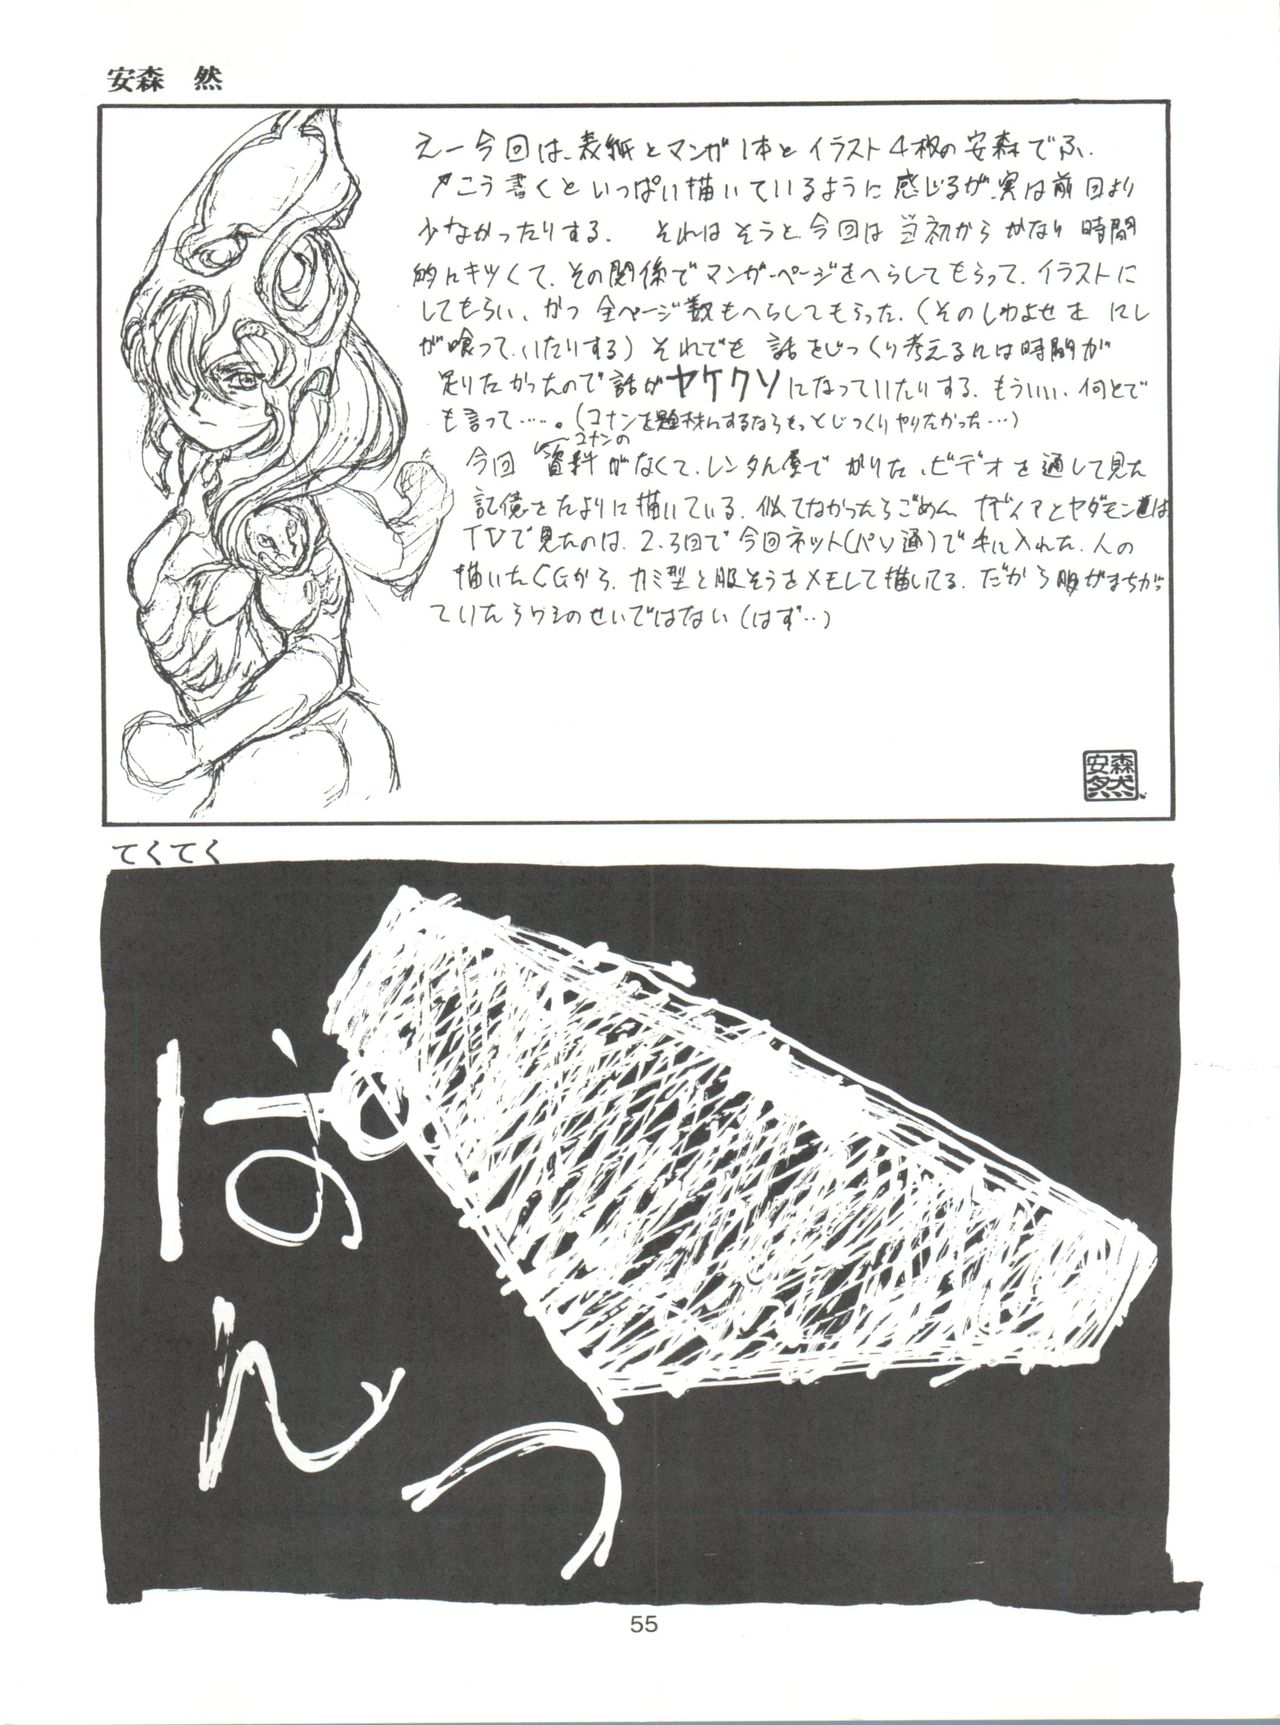 安森　然
えー今回は、表紙とマンガ1本とイラスト4枚の安森でふ.
↗こう書くといっぱい描いているように感じるが、実は前回より
少なかったりする. それはそうと、今回は当初からかなり時間
的にキツくて、その関係でマンガページをへらしてもらって、イラストに
してもらい、かつ全ページ数もへらしてもらった.(そのしわよせを にし
が喰って、いたりする) それでも 話をじっくり考えるには時間が
足りなかったので話がヤケクソになっていたりする. もういい、何とで
も言って……。(コナンを題材にするならもっとじっくりやりたかった…)
今回 コナンの資料がなくて、レンタル屋でかりた、ビデオを通して見た
記憶をたよりに描いている. 似てなかったらごめん ナディアとヤダモンは
TVで見たのは、2、3回で今回ネット(パソ通)で手に入れた、人の
描いたCGから、カミ型と服そうをメモして描いてる. だから服がまちがっ
ていたらワシのせいではない(はず…)
安森然
てくてく
はえ
つ
55